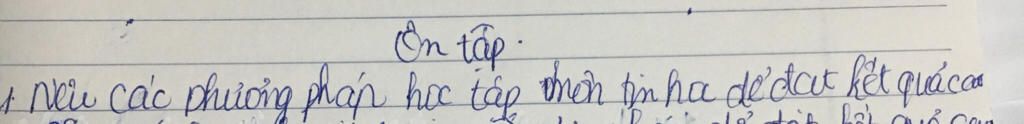 Ôn tập.
1. Nêu các phương pháp học tập môn tin học để đạt kết quả cao